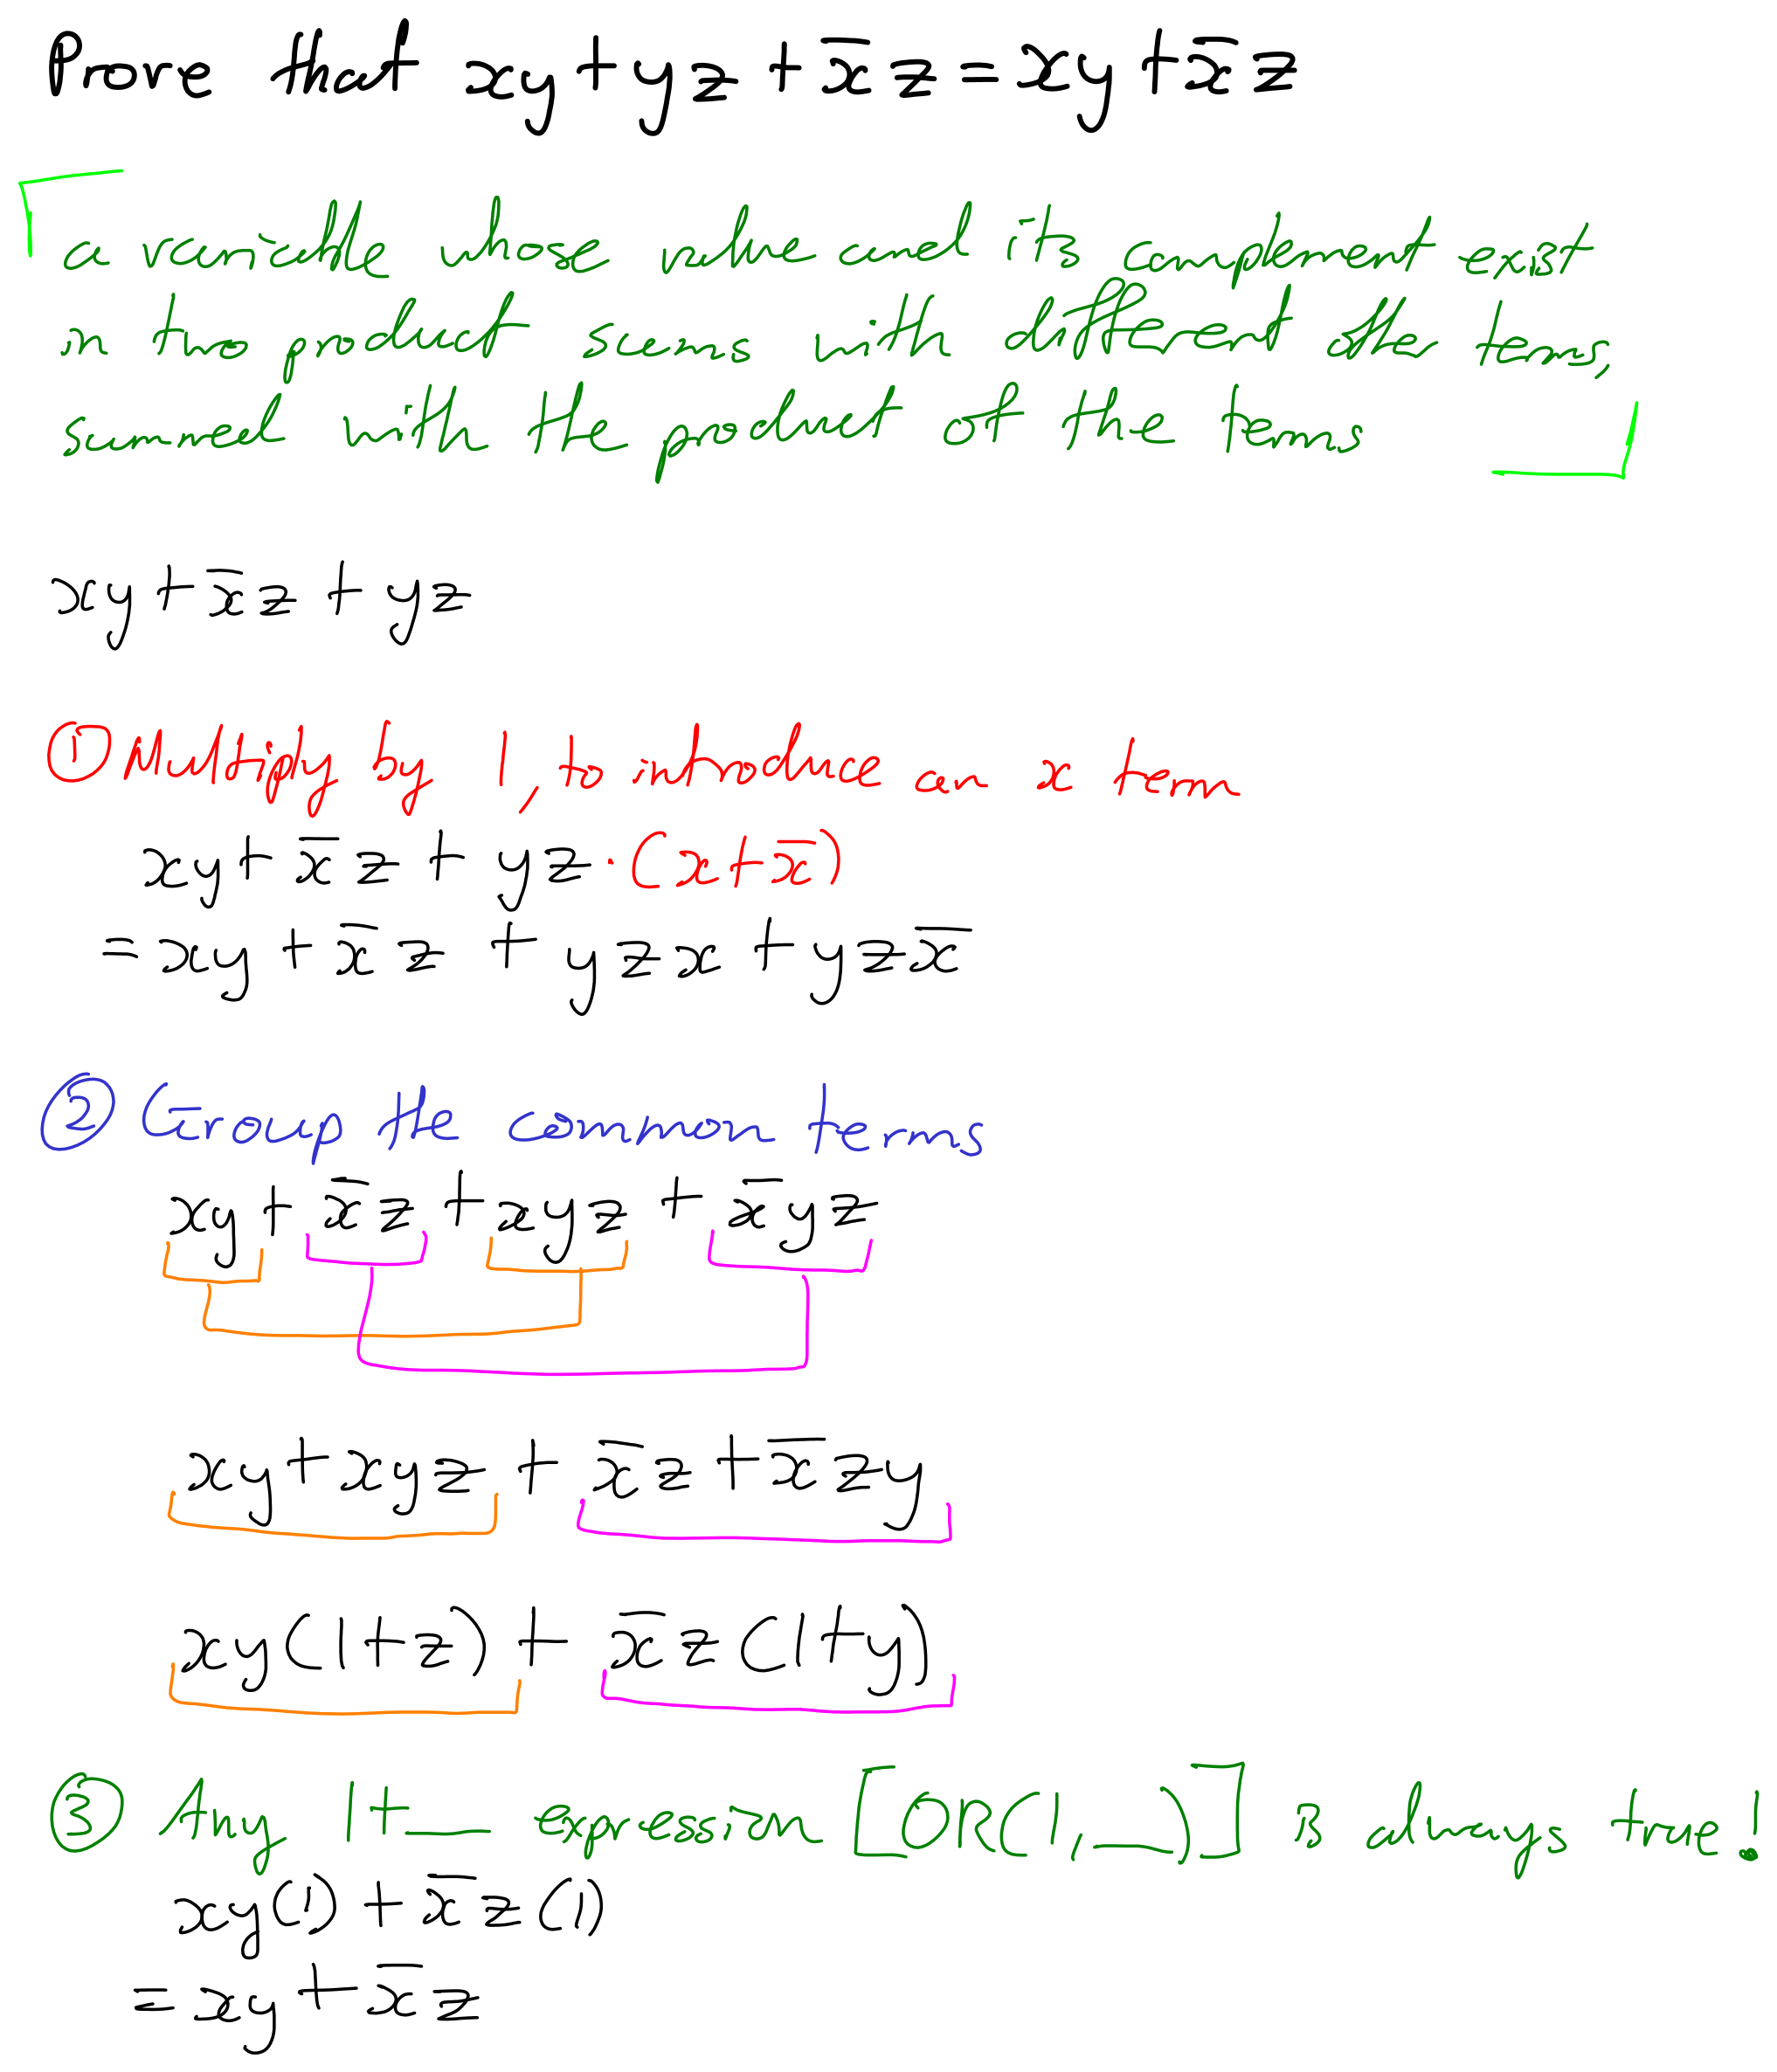 Prove that xy + yz + x̅z = xy + x̅z
a variable whose value and its complement exist
in two product sums with different other terms,
summed with the product of the terms
xy + x̅z + yz
① Multiply by 1, to introduce an x term
xy + x̅z + yz · (x + x̅)
= xy + x̅z + yzx + yzx̅
② Group the common terms
xy + x̅z + xyz + x̅yz
xy + xyz + x̅z + x̅zy
xy(1+z) + x̅z(1+y)
③ Any 1+__ expression [OR(1,__)] is always true!
xy(1) + x̅z(1)
= xy + x̅z